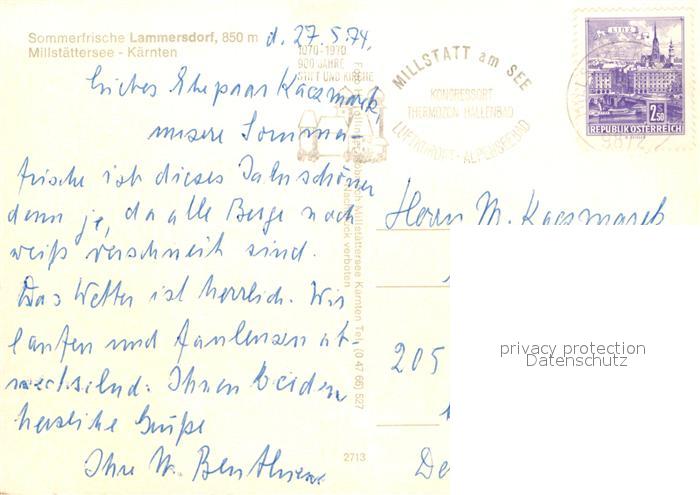 Sommerfrische Lammersdorf, 850 m
Millstättersee - Kärnten
d. 27.5.74.
1070-1970
900 JAHRE
STIFT UND KIRCHE
MILLSTATT am SEE
KONGRESSORT
THERMOZON HALLENBAD
LUFTKURORT - ALPENSEEBAD
LINZ
2.50
REPUBLIK ÖSTERREICH
Liebes Ehepaar Kaczmarek,
unsere Somma-
frische ist dieses Jahr schöner
denn je, da alle Berge noch
weiß verschneit sind.
Das Wetter ist herrlich. Wir
laufen und faulenzen ab-
wechselnd. Ihnen beiden
herzliche Grüße
Ihre
Millstättersee Kärnten Tel. (0 47 66) 527
Nachdruck verboten
2713
Herrn M. Kaczmarek
205
privacy protection
Datenschutz